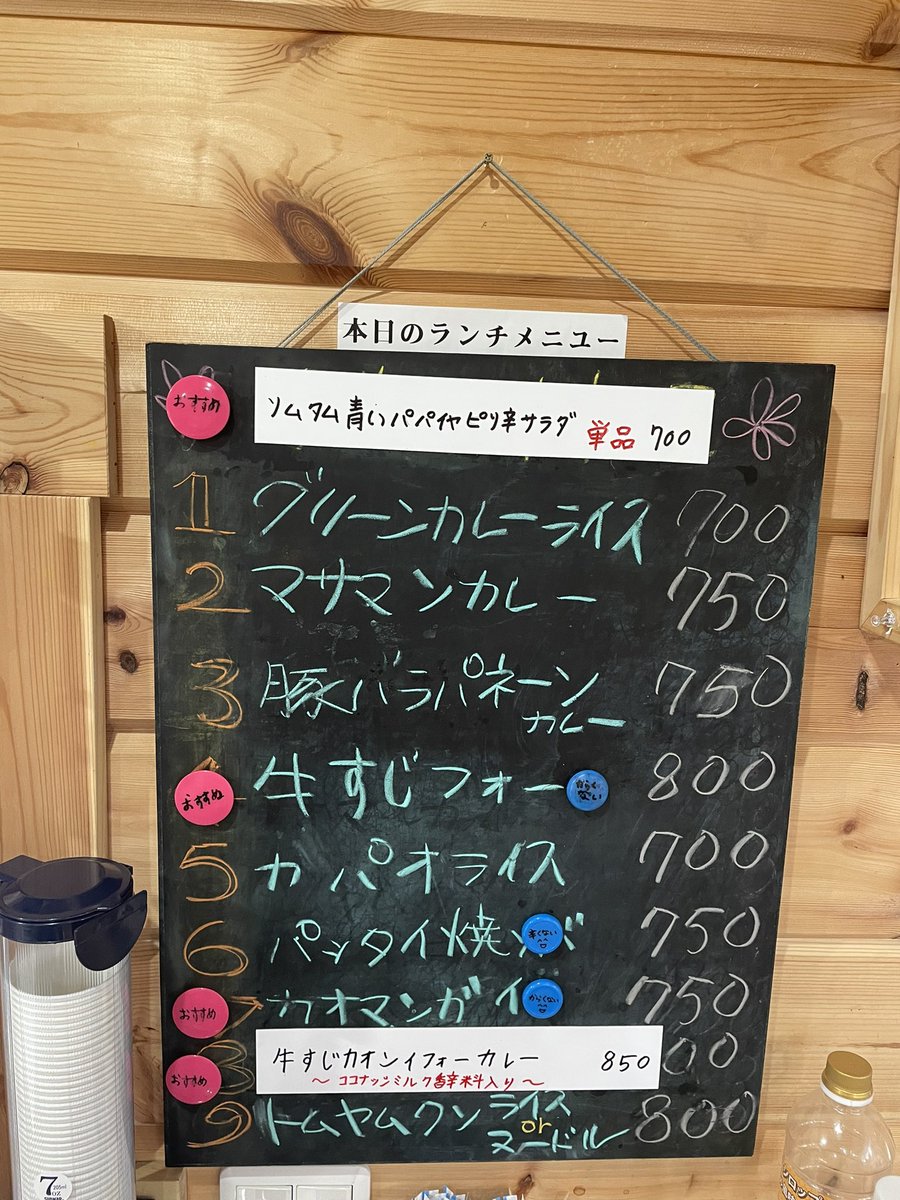 本日のランチメニュー
おすすめ
ソムタム青いパパイヤピリ辛サラダ 単品 700
1 グリーンカレーライス 700
2 マサマンカレー 750
3 豚バラパネーンカレー 750
おすすめ 牛すじフォー からくない 800
5 カパオライス 700
6 パッタイ焼ソバ 辛くない 750
おすすめ 7 カオマンガイ からくない 750
おすすめ 8 牛すじカオソイフォーカレー 850 00
～ココナッツミルク香辛料入り～
9 トムヤムクン ライス or ヌードル 800
7 205ml
OZ
シロップ